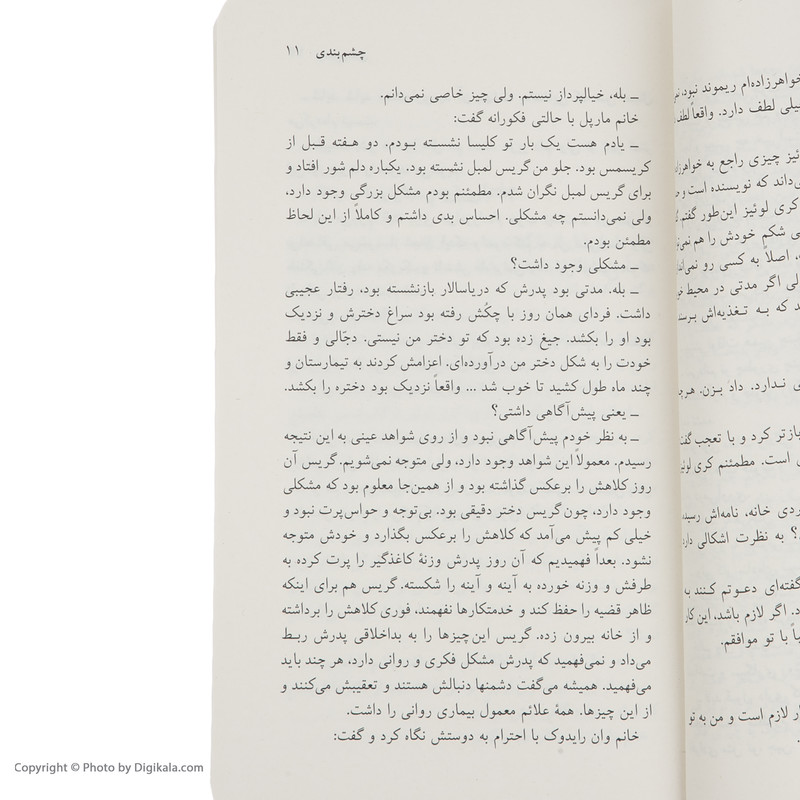 چشم‌بندی ۱۱
ــ بله، خیالپرداز نیستم. ولی چیز خاصی نمی‌دانم.
خانم مارپل با حالتی فکورانه گفت:
ــ یادم هست یک بار تو کلیسا نشسته بودم. دو هفته قبل از
کریسمس بود. جلو من گریس لمبل نشسته بود. یکباره دلم شور افتاد و
برای گریس لمبل نگران شدم. مطمئنم بودم مشکل بزرگی وجود دارد،
ولی نمی‌دانستم چه مشکلی. احساس بدی داشتم و کاملاً از این لحاظ
مطمئن بودم.
ــ مشکلی وجود داشت؟
ــ بله. مدتی بود پدرش که دریاسالار بازنشسته بود، رفتار عجیبی
داشت. فردای همان روز با چکُش رفته بود سراغ دخترش و نزدیک
بود او را بکشد. جیغ زده بود که تو دختر من نیستی. دجّالی و فقط
خودت را به شکل دختر من درآورده‌ای. اعزامش کردند به تیمارستان و
چند ماه طول کشید تا خوب شد ... واقعاً نزدیک بود دختره را بکشد.
ــ یعنی پیش‌آگاهی داشتی؟
ــ به نظر خودم پیش‌آگاهی نبود و از روی شواهد عینی به این نتیجه
رسیدم. معمولاً این شواهد وجود دارد، ولی متوجه نمی‌شویم. گریس آن
روز کلاهش را برعکس گذاشته بود و از همین‌جا معلوم بود که مشکلی
وجود دارد، چون گریس دختر دقیقی بود. بی‌توجه و حواس‌پرت نبود و
خیلی کم پیش می‌آمد که کلاهش را برعکس بگذارد و خودش متوجه
نشود. بعداً فهمیدیم که آن روز پدرش وزنهٔ کاغذگیر را پرت کرده به
طرفش و وزنه خورده به آینه و آینه را شکسته. گریس هم برای اینکه
ظاهر قضیه را حفظ کند و خدمتکارها نفهمند، فوری کلاهش را برداشته
و از خانه بیرون زده. گریس این‌چیزها را به بداخلاقی پدرش ربط
می‌داد و نمی‌فهمید که پدرش مشکل فکری و روانی دارد، هر چند باید
می‌فهمید. همیشه می‌گفت دشمنها دنبالش هستند و تعقیبش می‌کنند و
از این چیزها. همهٔ علائم معمول بیماری روانی را داشت.
خانم وان رایدوک با احترام به دوستش نگاه کرد و گفت:
خواهرزاده‌ام ریموند نبود،
لطف دارد. واقعاً
چیزی راجع به
که نویسنده است و
کری لوئیز این‌طور گفتم
شکم خودش را هم
اصلاً به کسی رو
اگر مدتی در محیط
که به تغذیه‌اش
ندارد. داد بزن.
بازتر کرد و با تعجب
است. مطمئنم کری
خانه، نامه‌اش
به نظرت اشکالی
گفته‌ای دعوتم کنند
اگر لازم باشد، این
با تو موافقم.
لازم است و من به تو
Copyright © Photo by Digikala.com